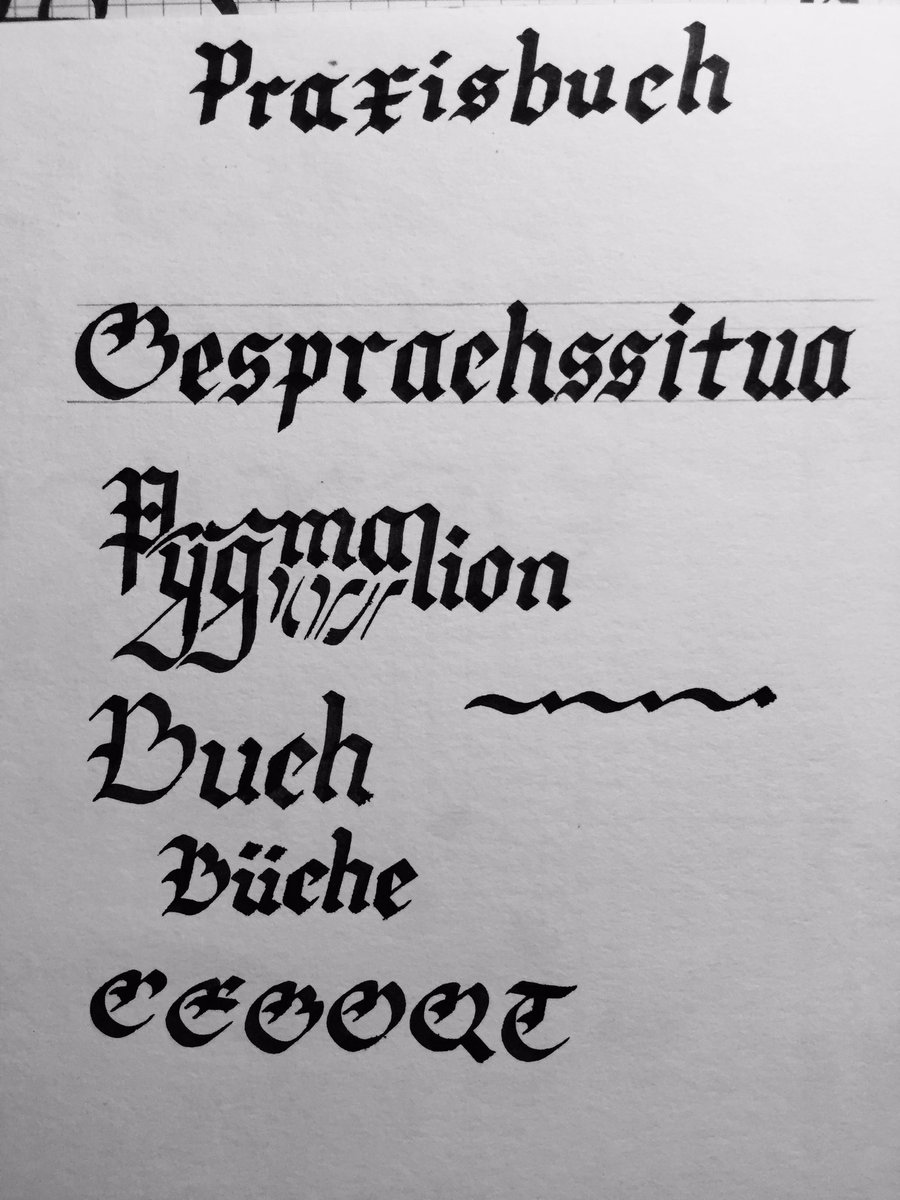 Praxisbuch
Gesprachssitua
Pygmalion
Buch
Büche
CEGOQT